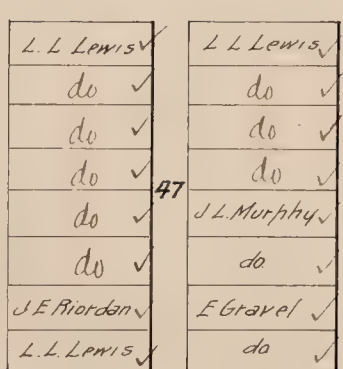 L. L Lewis ✓
do ✓
do ✓
do ✓
do ✓
do ✓
J E Riordan ✓
L. L. Lewis ✓
47
L L Lewis ✓
do ✓
do ✓
do ✓
J L. Murphy ✓
do. ✓
E Gravel ✓
do ✓